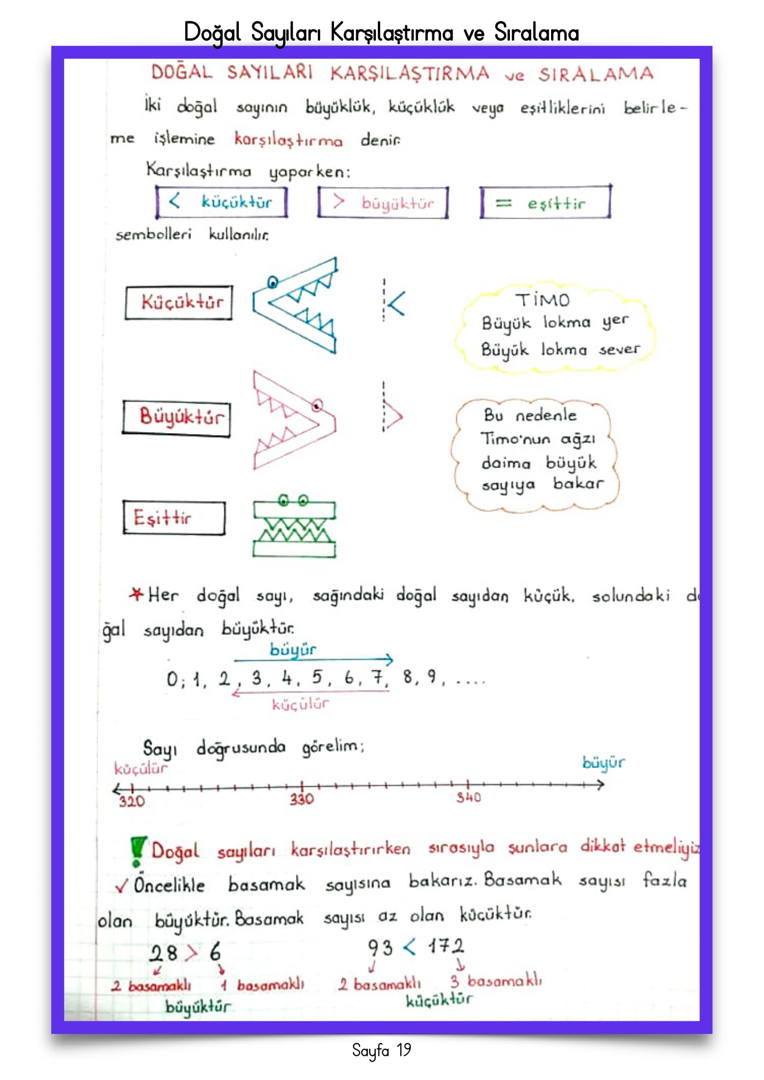 Doğal Sayıları Karşılaştırma ve Sıralama
DOĞAL SAYILARI KARŞILAŞTIRMA ve SIRALAMA
İki doğal sayının büyüklük, küçüklük veya eşitliklerini belirle-
me işlemine karşılaştırma denir.
Karşılaştırma yaparken:
< küçüktür > büyüktür = eşittir
sembolleri kullanılır.
Küçüktür <
TİMO
Büyük lokma yer
Büyük lokma sever
Büyüktür >
Bu nedenle
Timo'nun ağzı
daima büyük
sayıya bakar
Eşittir
*Her doğal sayı, sağındaki doğal sayıdan küçük, solundaki do
ğal sayıdan büyüktür.
büyür
0, 1, 2, 3, 4, 5, 6, 7, 8, 9, ....
küçülür
Sayı doğrusunda görelim;
küçülür büyür
320 330 340
! Doğal sayıları karşılaştırırken sırasıyla şunlara dikkat etmeliyiz
✓ Öncelikle basamak sayısına bakarız. Basamak sayısı fazla
olan büyüktür. Basamak sayısı az olan küçüktür.
28 > 6 93 < 172
2 basamaklı 1 basamaklı 2 basamaklı 3 basamaklı
büyüktür küçüktür
Sayfa 19